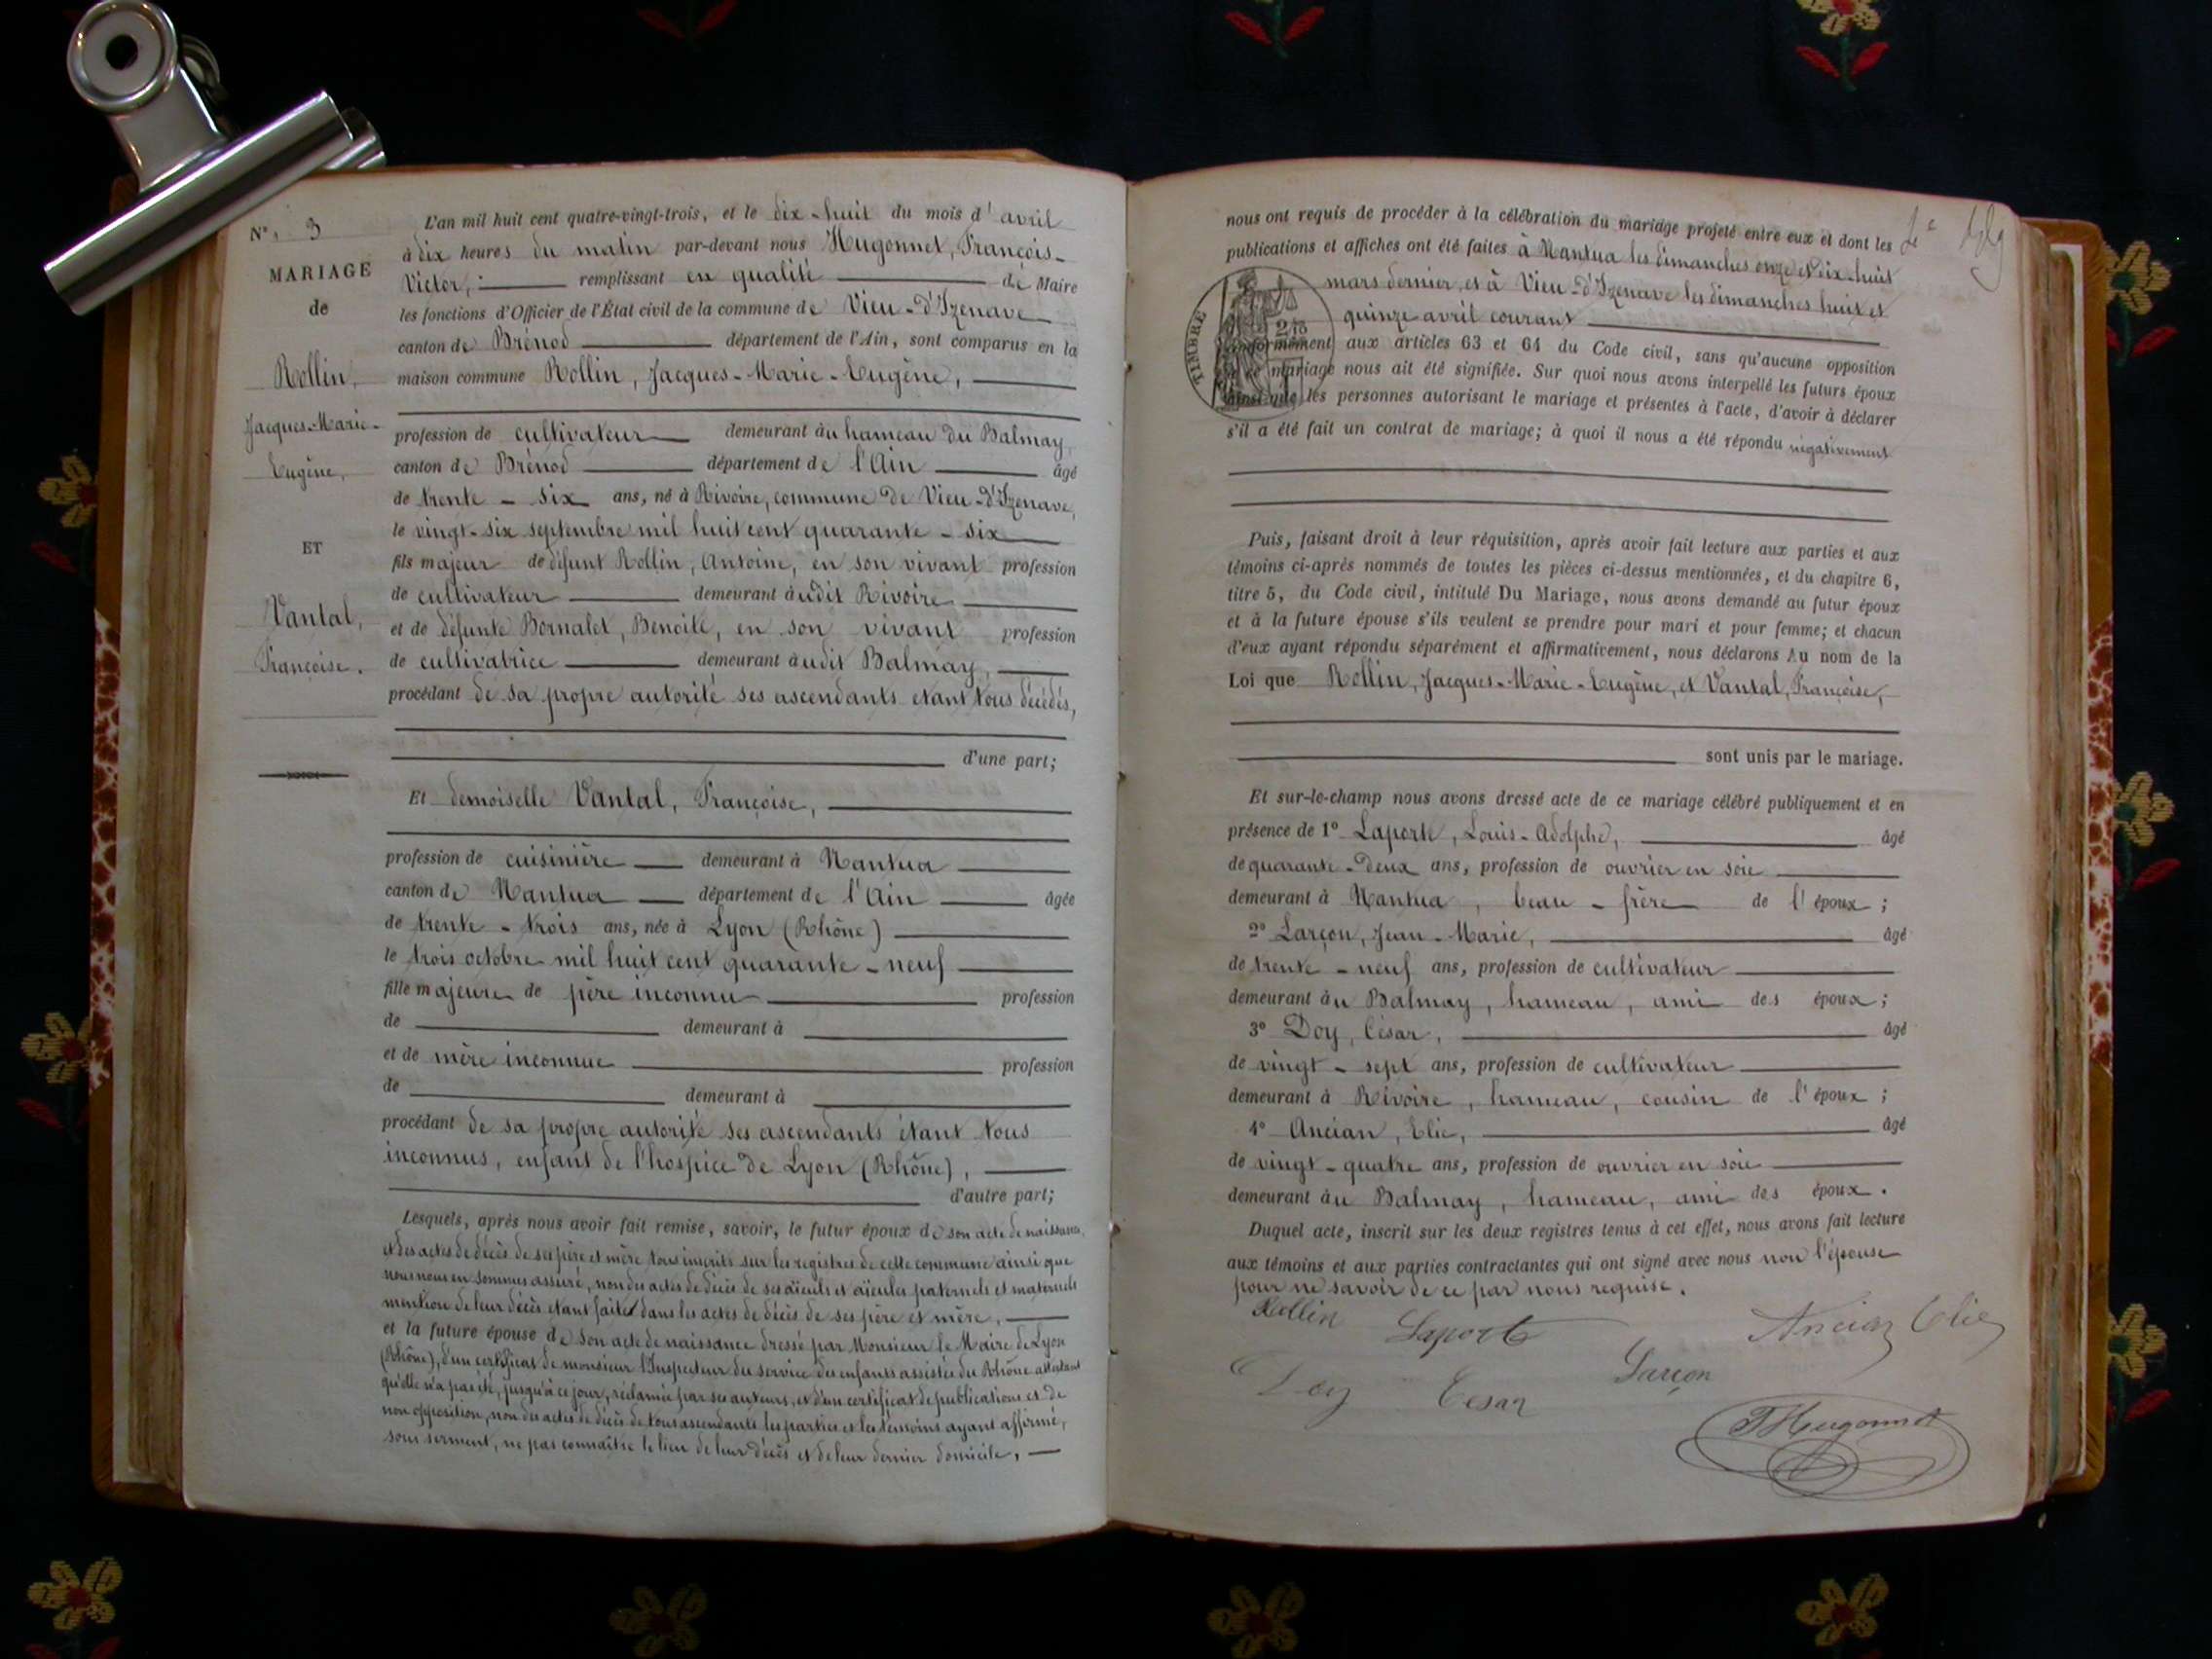 N°. 3
MARIAGE
de
Rollin,
Jacques-Marie-
Eugène,
ET
Vantal,
Françoise.
L'an mil huit cent quatre-vingt-trois, et le dix-huit du mois d'avril
à dix heures du matin par-devant nous Hugonnet, François-
Victor, remplissant en qualité de Maire
les fonctions d'Officier de l'État civil de la commune de Vieu-d'Izenave
canton de Brénod département de l'Ain, sont comparus en la
maison commune Rollin, Jacques-Marie-Eugène,
profession de cultivateur demeurant au hameau du Balmay,
canton de Brénod département de l'Ain âgé
de trente-six ans, né à Rivoire, commune de Vieu-d'Izenave,
le vingt-six septembre mil huit cent quarante-six
fils majeur de défunt Rollin, Antoine, en son vivant profession
de cultivateur demeurant audit Rivoire
et de défunte Bornalet, Benoite, en son vivant profession
de cultivatrice demeurant audit Balmay,
procédant de sa propre autorité ses ascendants étant tous décédés,
d'une part;
Et demoiselle Vantal, Françoise,
profession de cuisinière demeurant à Nantua
canton de Nantua département de l'Ain âgée
de trente-trois ans, née à Lyon (Rhône)
le trois octobre mil huit cent quarante-neuf
fille majeure de père inconnu profession
de demeurant à
et de mère inconnue profession
de demeurant à
procédant de sa propre autorité ses ascendants étant tous
inconnus, enfant de l'hospice de Lyon (Rhône),
d'autre part;
Lesquels, après nous avoir fait remise, savoir, le futur époux de son acte de naissance,
et des actes de décès de ses père et mère tous inscrits sur les registres de cette commune ainsi que
nous nous en sommes assuré, non des actes de décès de ses aïeuls et aïeules paternels et maternels
mention de leur décès étant faite dans les actes de décès de ses père et mère,
et la future épouse de son acte de naissance dressé par Monsieur le Maire de Lyon
(Rhône), d'un certificat de monsieur l'Inspecteur du service des enfants assistés du Rhône attestant
qu'elle n'a pas été, jusqu'à ce jour, réclamée par ses auteurs, et d'un certificat de publications et de
non opposition, non des actes de décès de tous ascendants les parties et les témoins ayant affirmé,
sous serment, ne pas connaître le lieu de leur décès et de leur dernier domicile,
nous ont requis de procéder à la célébration du mariage projeté entre eux et dont les
publications et affiches ont été faites à Nantua les dimanches onze et dix-huit
mars dernier, et à Vieu-d'Izenave les dimanches huit et
quinze avril courant
TIMBRE
conformément aux articles 63 et 64 du Code civil, sans qu'aucune opposition
mariage nous ait été signifiée. Sur quoi nous avons interpellé les futurs époux
ainsi que les personnes autorisant le mariage et présentes à l'acte, d'avoir à déclarer
s'il a été fait un contrat de mariage; à quoi il nous a été répondu négativement
Puis, faisant droit à leur réquisition, après avoir fait lecture aux parties et aux
témoins ci-après nommés de toutes les pièces ci-dessus mentionnées, et du chapitre 6,
titre 5, du Code civil, intitulé Du Mariage, nous avons demandé au futur époux
et à la future épouse s'ils veulent se prendre pour mari et pour femme; et chacun
d'eux ayant répondu séparément et affirmativement, nous déclarons Au nom de la
Loi que Rollin, Jacques-Marie-Eugène, et Vantal, Françoise,
sont unis par le mariage.
Et sur-le-champ nous avons dressé acte de ce mariage célébré publiquement et en
présence de 1° Laporte, Louis-Adolphe, âgé
de quarante-deux ans, profession de ouvrier en soie
demeurant à Nantua, beau-frère de l'époux;
2° Larçon, Jean-Marie, âgé
de trente-neuf ans, profession de cultivateur
demeurant au Balmay, hameau, ami des époux;
3° Doy, César, âgé
de vingt-sept ans, profession de cultivateur
demeurant à Rivoire, hameau, cousin de l'époux;
4° Ancian, Elie, âgé
de vingt-quatre ans, profession de ouvrier en soie
demeurant au Balmay, hameau, ami des époux.
Duquel acte, inscrit sur les deux registres tenus à cet effet, nous avons fait lecture
aux témoins et aux parties contractantes qui ont signé avec nous non l'épouse
pour ne savoir de ce par nous requise.
Rollin Laporte Ancian Elie
Doy Cesar Larçon
F Hugonnet